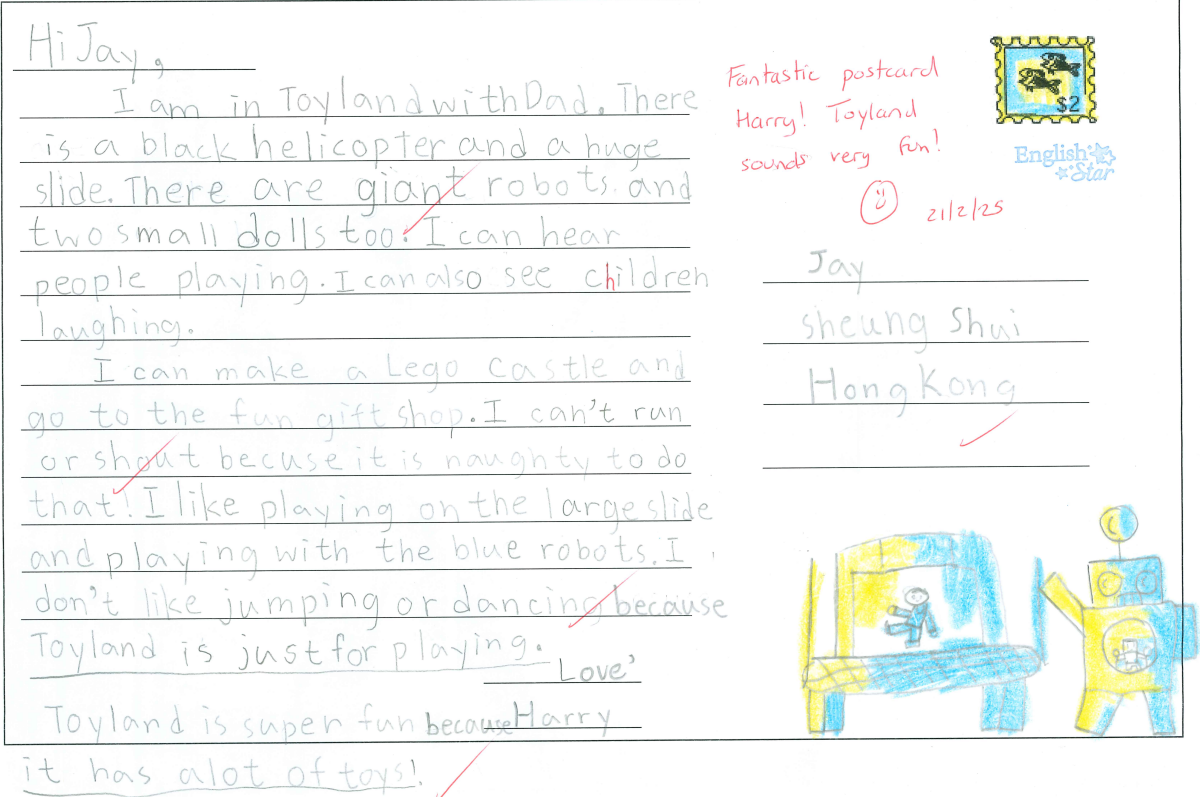 Hi Jay,
I am in Toyland with Dad. There
is a black helicopter and a huge
slide. There are giant robots and
two small dolls too. I can hear
people playing. I can also see children
laughing.
I can make a Lego castle and
go to the fun gift shop. I can't run
or shout becuse it is naughty to do
that! I like playing on the large slide
and playing with the blue robots. I
don't like jumping or dancing because
Toyland is just for playing.
Love,
Toyland is super fun because Harry
it has alot of toys!
Fantastic postcard
Harry! Toyland
sounds very fun!
21/2/25
$2
English
Star
Jay
sheung Shui
Hong Kong